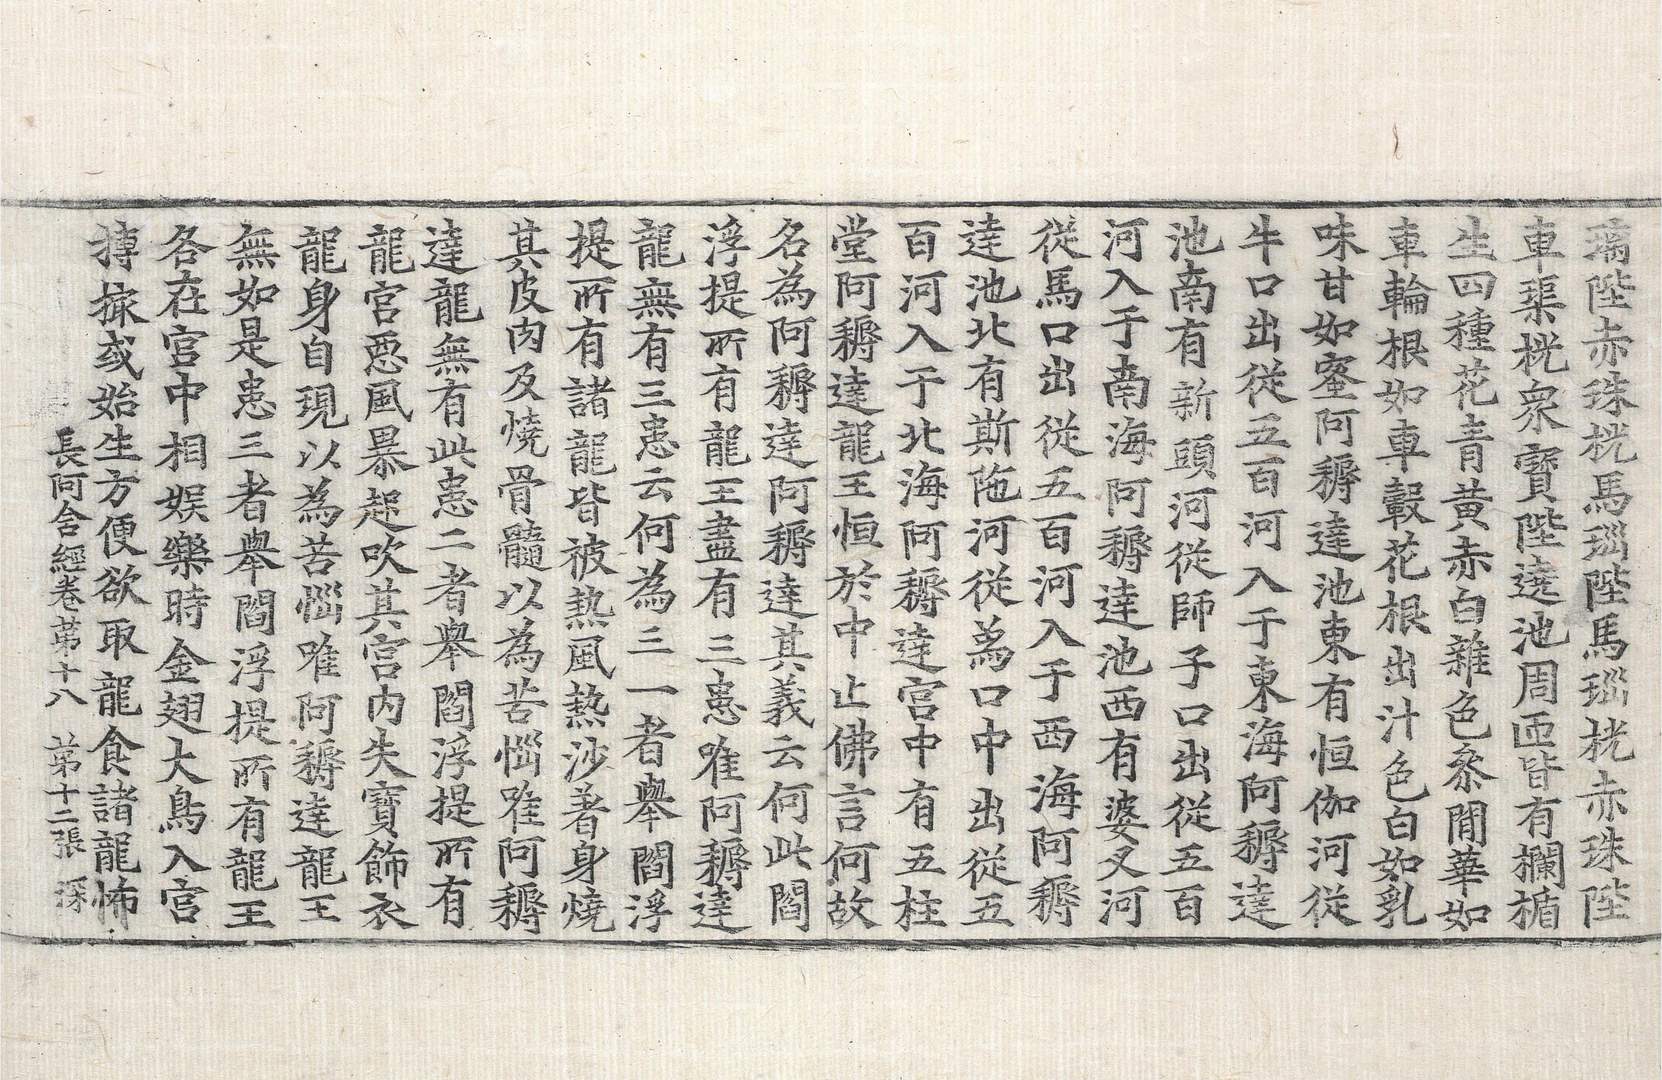 璃陛赤珠桄馬瑙陛馬瑙桄赤珠陛
車璖桄衆寶陛遶池周匝皆有欄楯
生四種花青黃赤白雜色叅閒華如
車輪根如車轂花根出汁色白如乳
味甘如蜜阿耨達池東有恒伽河從
牛口出從五百河入于東海阿耨達
池南有新頭河從師子口出從五百
河入于南海阿耨達池西有婆叉河
從馬口出從五百河入于西海阿耨
達池北有斯陁河從爲口中出從五
百河入于北海阿耨達宮中有五柱
堂阿耨達龍王恒於中止佛言何故
名為阿耨達阿耨達其義云何此閻
浮提所有龍王盡有三患唯阿耨達
龍無有三患云何為三一者舉閻浮
提所有諸龍皆被熱風熱沙著身燒
其皮肉及燒骨髓以為苦惱唯阿耨
達龍無有此患二者舉閻浮提所有
龍宮惡風暴起吹其宮內失寶飾衣
龍身自現以為苦惱唯阿耨達龍王
無如是患三者舉閻浮提所有龍王
各在宮中相娛樂時金翅大鳥入宮
搏撮或始生方便欲取龍食諸龍怖
長阿含經卷第十八 第十二張 深